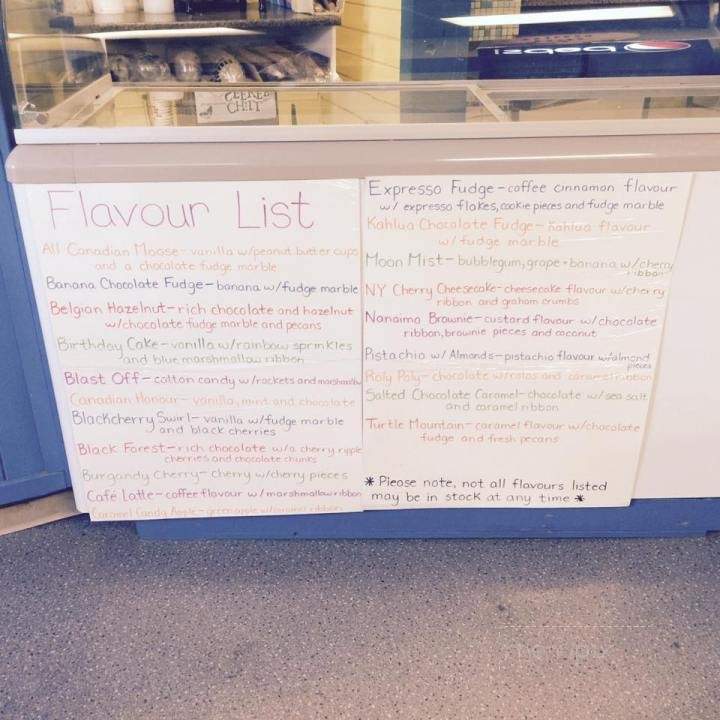 CHILI
pepsi
Flavour List
All Canadian Moose - vanilla w/peanut butter cups
and a chocolate fudge marble
Banana Chocolate Fudge - banana w/fudge marble
Belgian Hazelnut - rich chocolate and hazelnut
w/chocolate fudge marble and pecans
Birthday Cake - vanilla w/rainbow sprinkles
and blue marshmallow ribbon
Blast Off - cotton candy w/rockets and marshmallow
Canadian Honour - vanilla, mint and chocolate
Blackcherry Swirl - vanilla w/fudge marble
and black cherries
Black Forest - rich chocolate w/a cherry ripple
cherries and chocolate chunks
Burgandy Cherry - cherry w/cherry pieces
Café Latte - coffee flavour w/marshmallow ribbon
Caramel Candy Apple - green apple w/caramel ribbon
Expresso Fudge - coffee cinnamon flavour
w/ expresso flakes, cookie pieces and fudge marble
Kahlua Chocolate Fudge - Kahlua flavour
w/ fudge marble
Moon Mist - bubblegum, grape + banana w/cherry
ribbon
NY Cherry Cheesecake - cheesecake flavour w/cherry
ribbon and graham crumbs
Nanaimo Brownie - custard flavour w/chocolate
ribbon, brownie pieces and coconut
Pistachio w/ Almonds - pistachio flavour w/almond
pieces
Roly Poly - chocolate w/rolos and caramel ribbon
Salted Chocolate Caramel - chocolate w/sea salt
and caramel ribbon
Turtle Mountain - caramel flavour w/chocolate
fudge and fresh pecans
* Please note, not all flavours listed
may be in stock at any time *